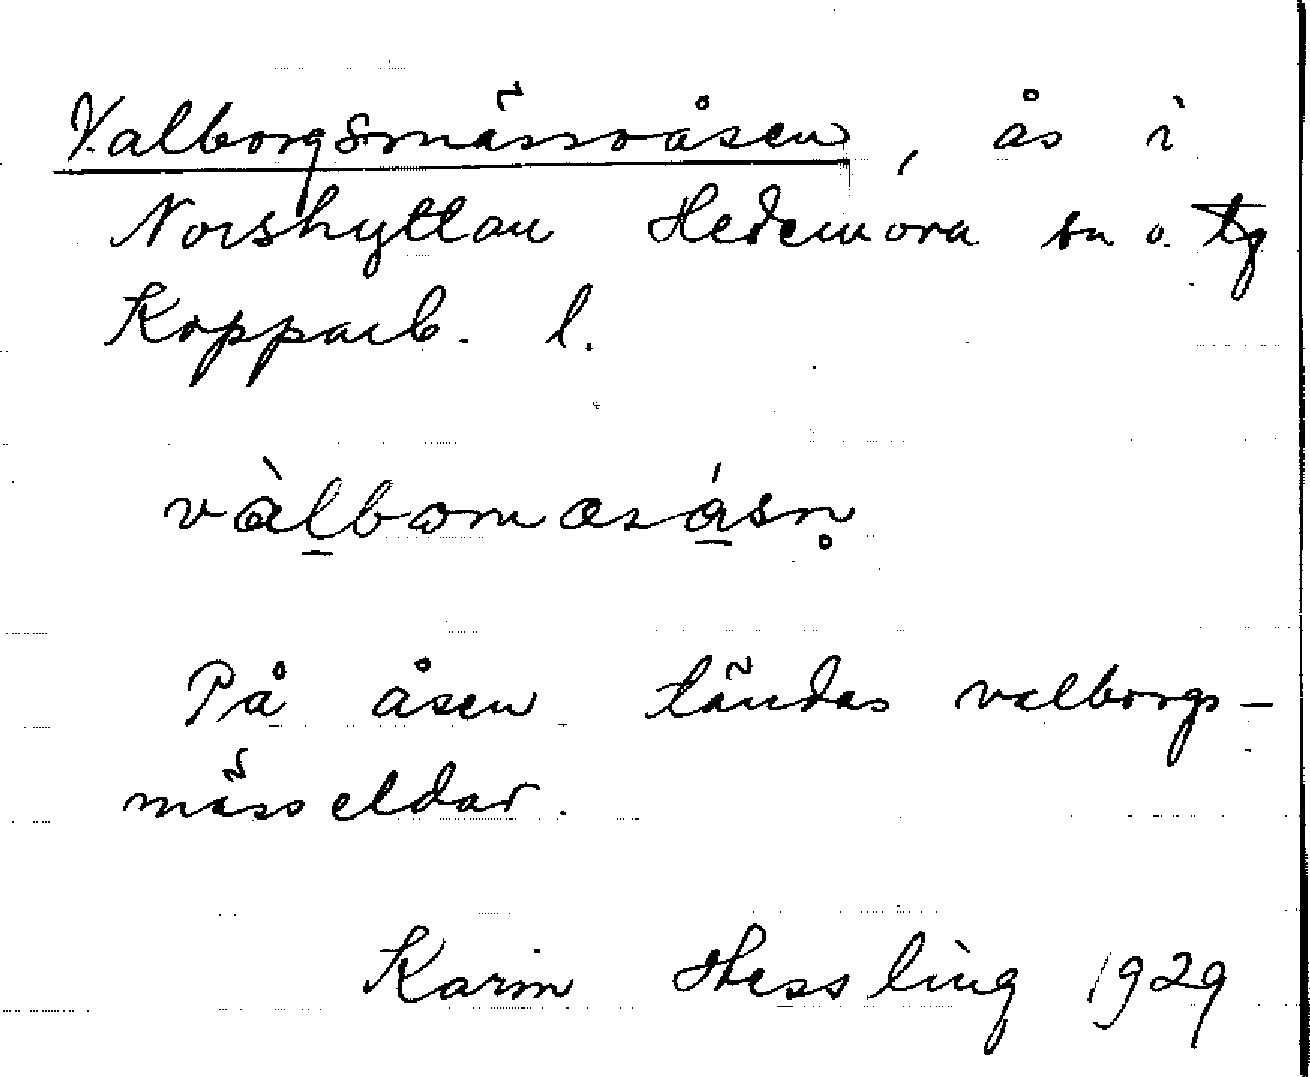 Valborgsmässoåsen, ås i
Norshyttan Hedemora sn o. tg
Kopparb. l.
På åsen tändas valborgs-
mässeldar.
Karin Hessling 1929